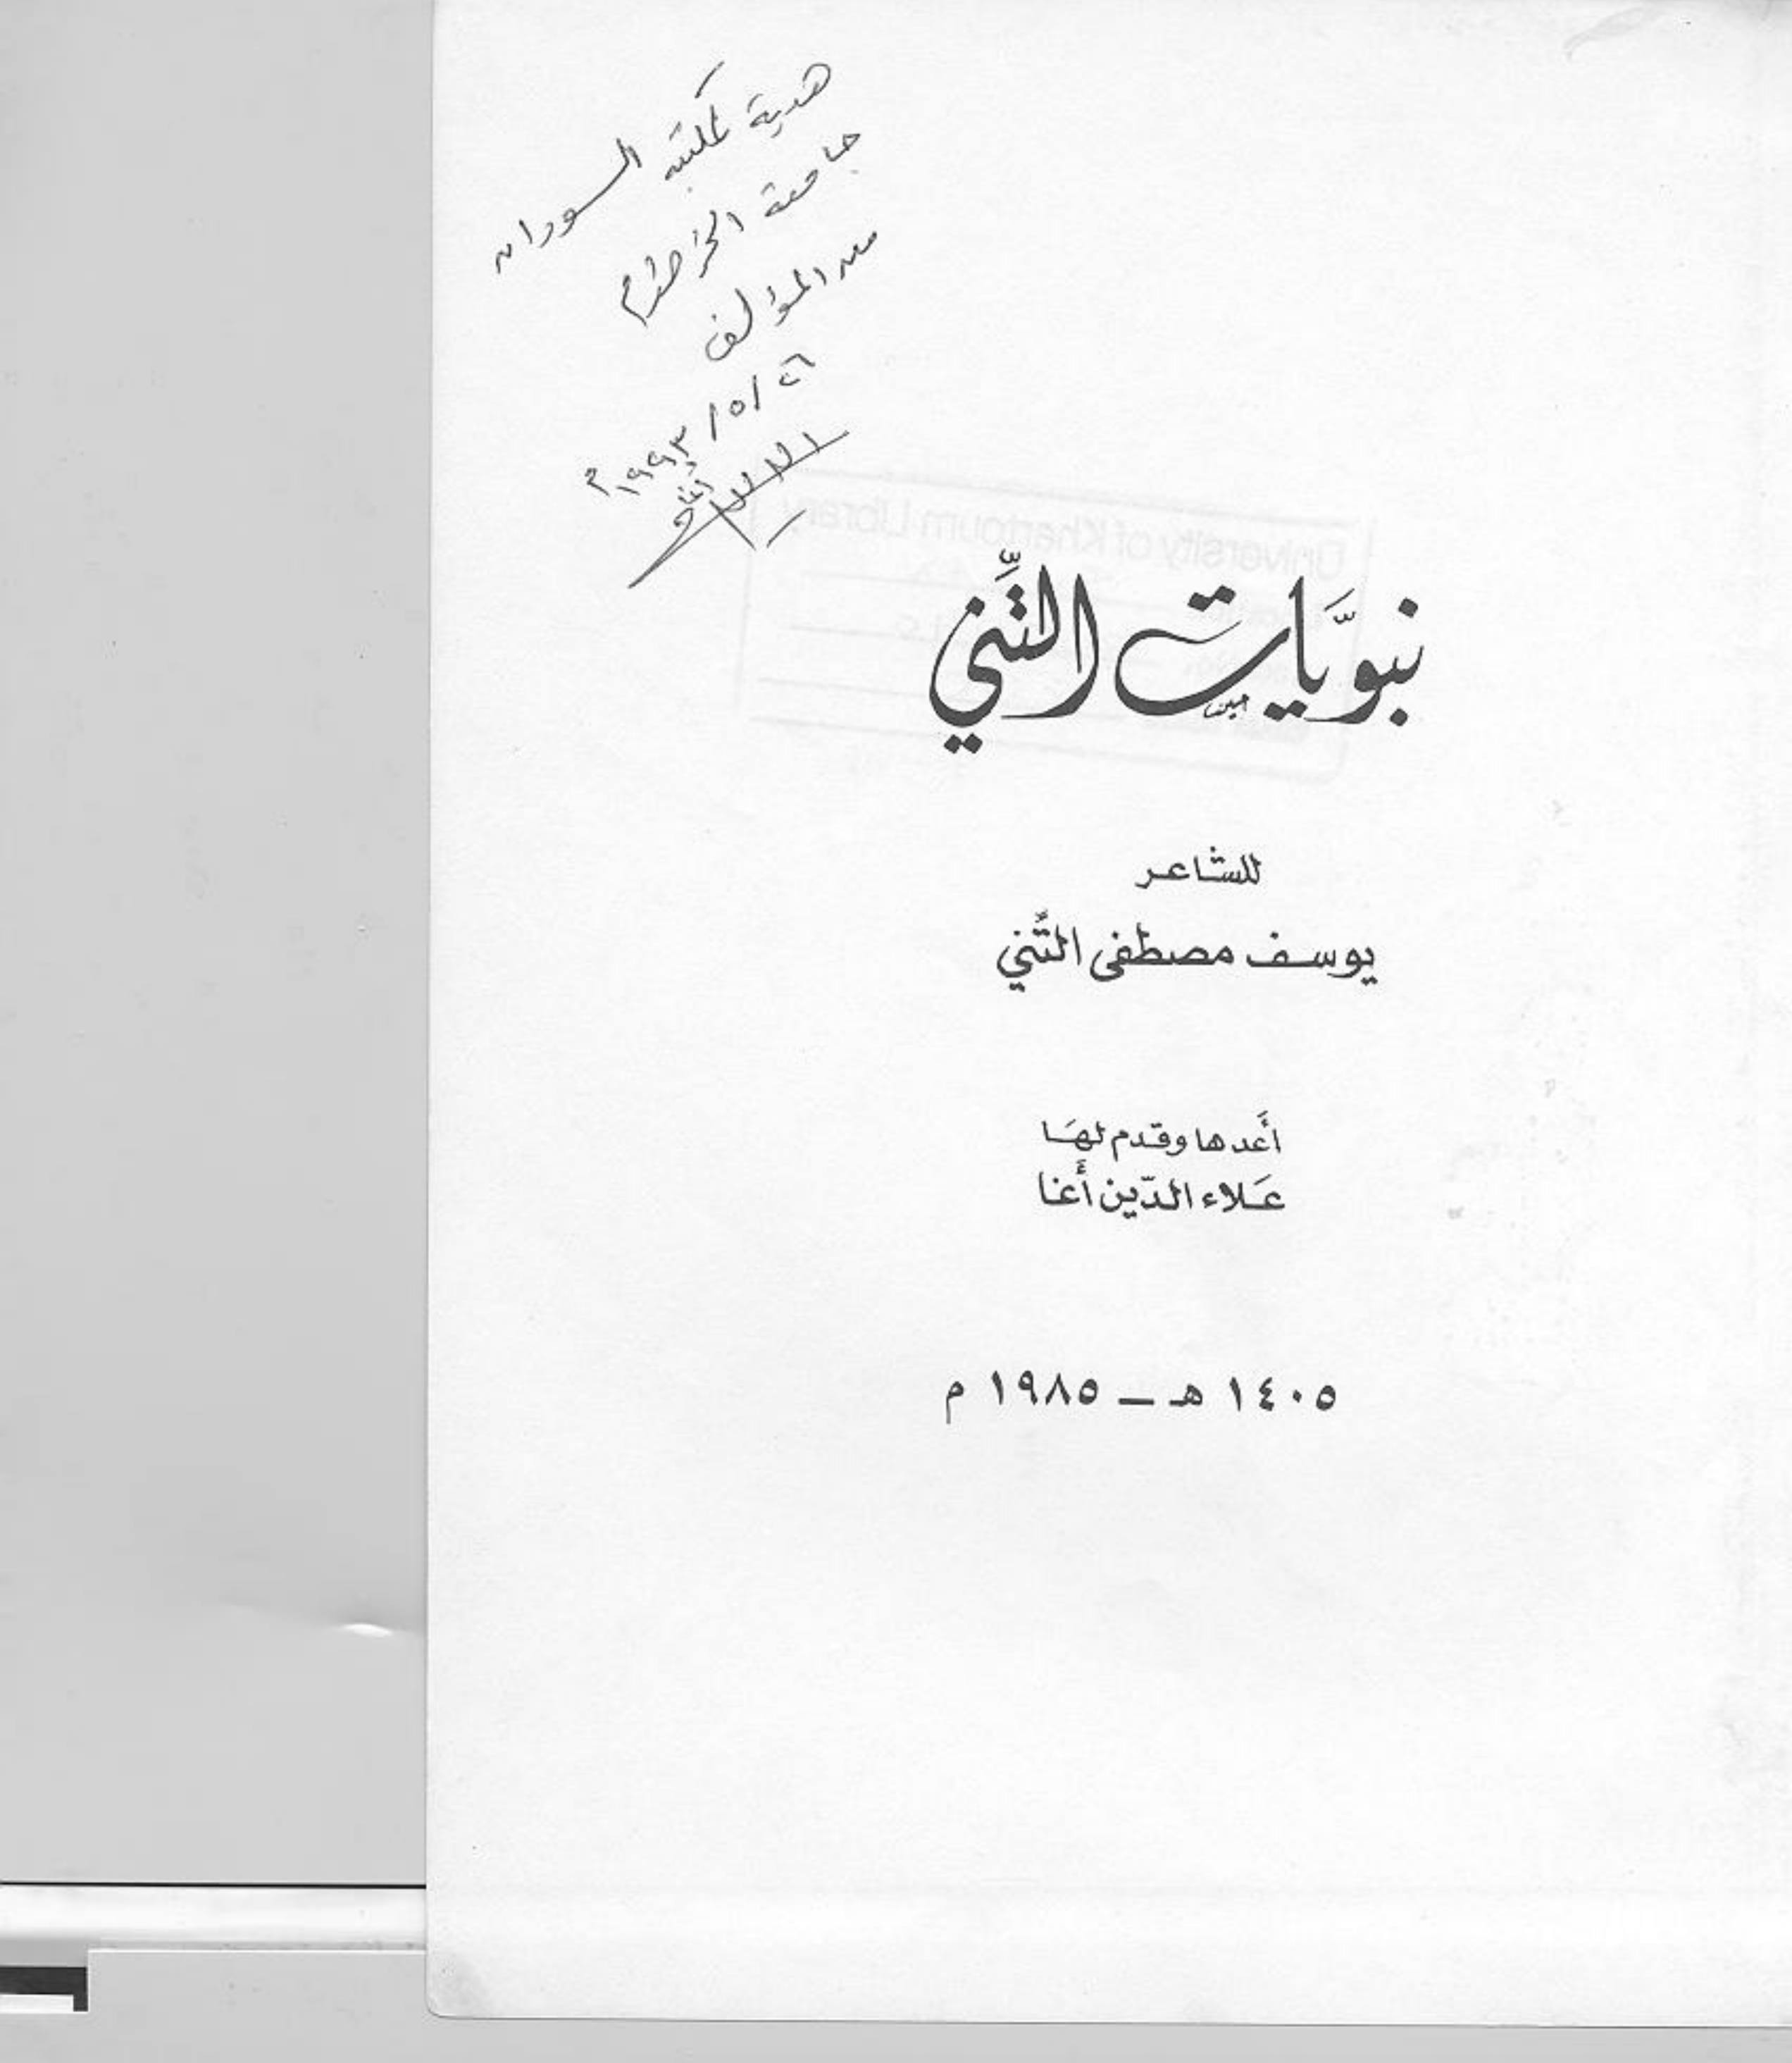 هدية لمكتبة السودان
جامعة الخرطوم
من المؤلف
٢٦ / ٥ / ١٩٩٣م
University of Khartoum Library
نبويَّات التِّني
للشاعر
يوسف مصطفى التِّني
أَعدها وقدم لهَا
عَلاء الدّين أَغا
١٤٠٥ هـ – ١٩٨٥ م